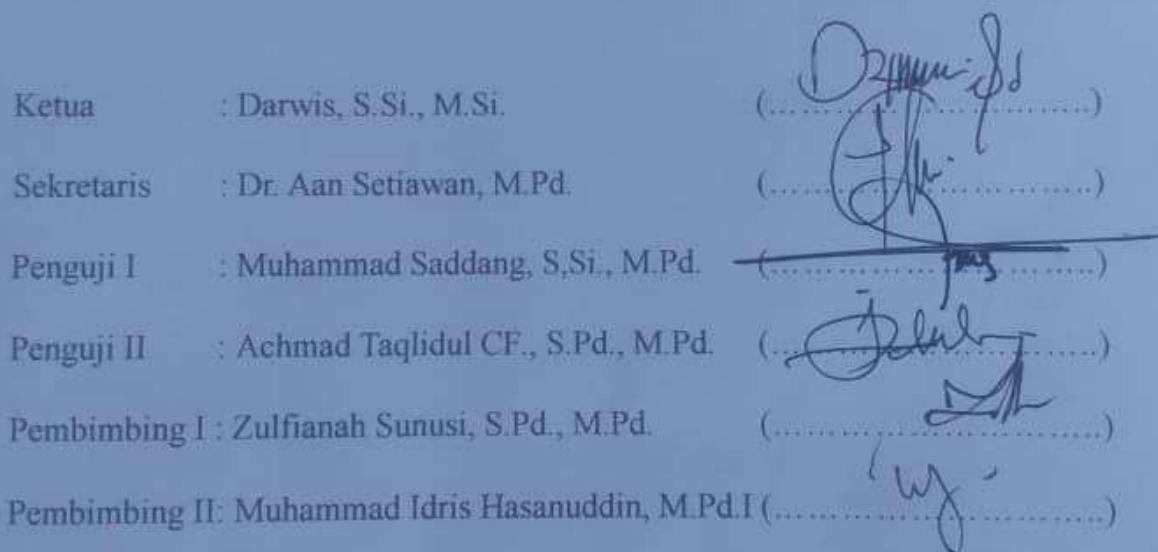 Ketua : Darwis, S.Si., M.Si. (....................................)
Sekretaris : Dr. Aan Setiawan, M.Pd. (....................................)
Penguji I : Muhammad Saddang, S,Si., M.Pd. (....................................)
Penguji II : Achmad Taqlidul CF., S.Pd., M.Pd. (....................................)
Pembimbing I : Zulfianah Sunusi, S.Pd., M.Pd. (....................................)
Pembimbing II: Muhammad Idris Hasanuddin, M.Pd.I (....................................)